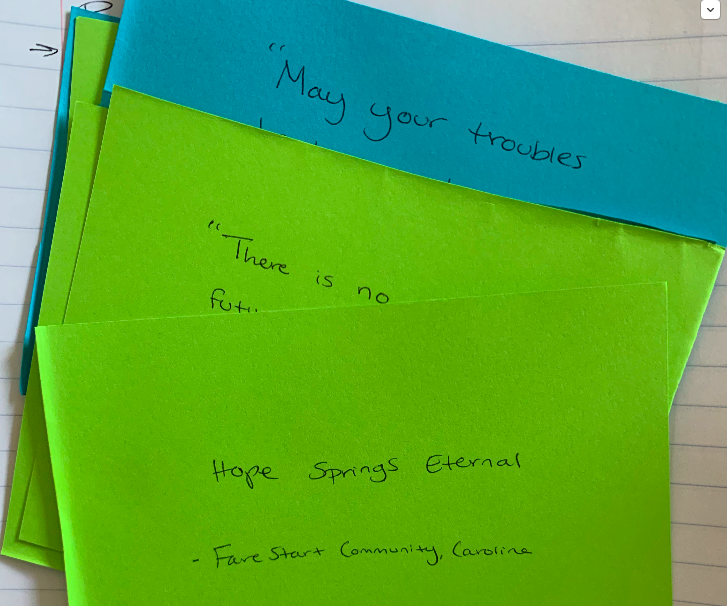 "May your troubles
"There is no
Hope Springs Eternal
- FareStart Community, Caroline